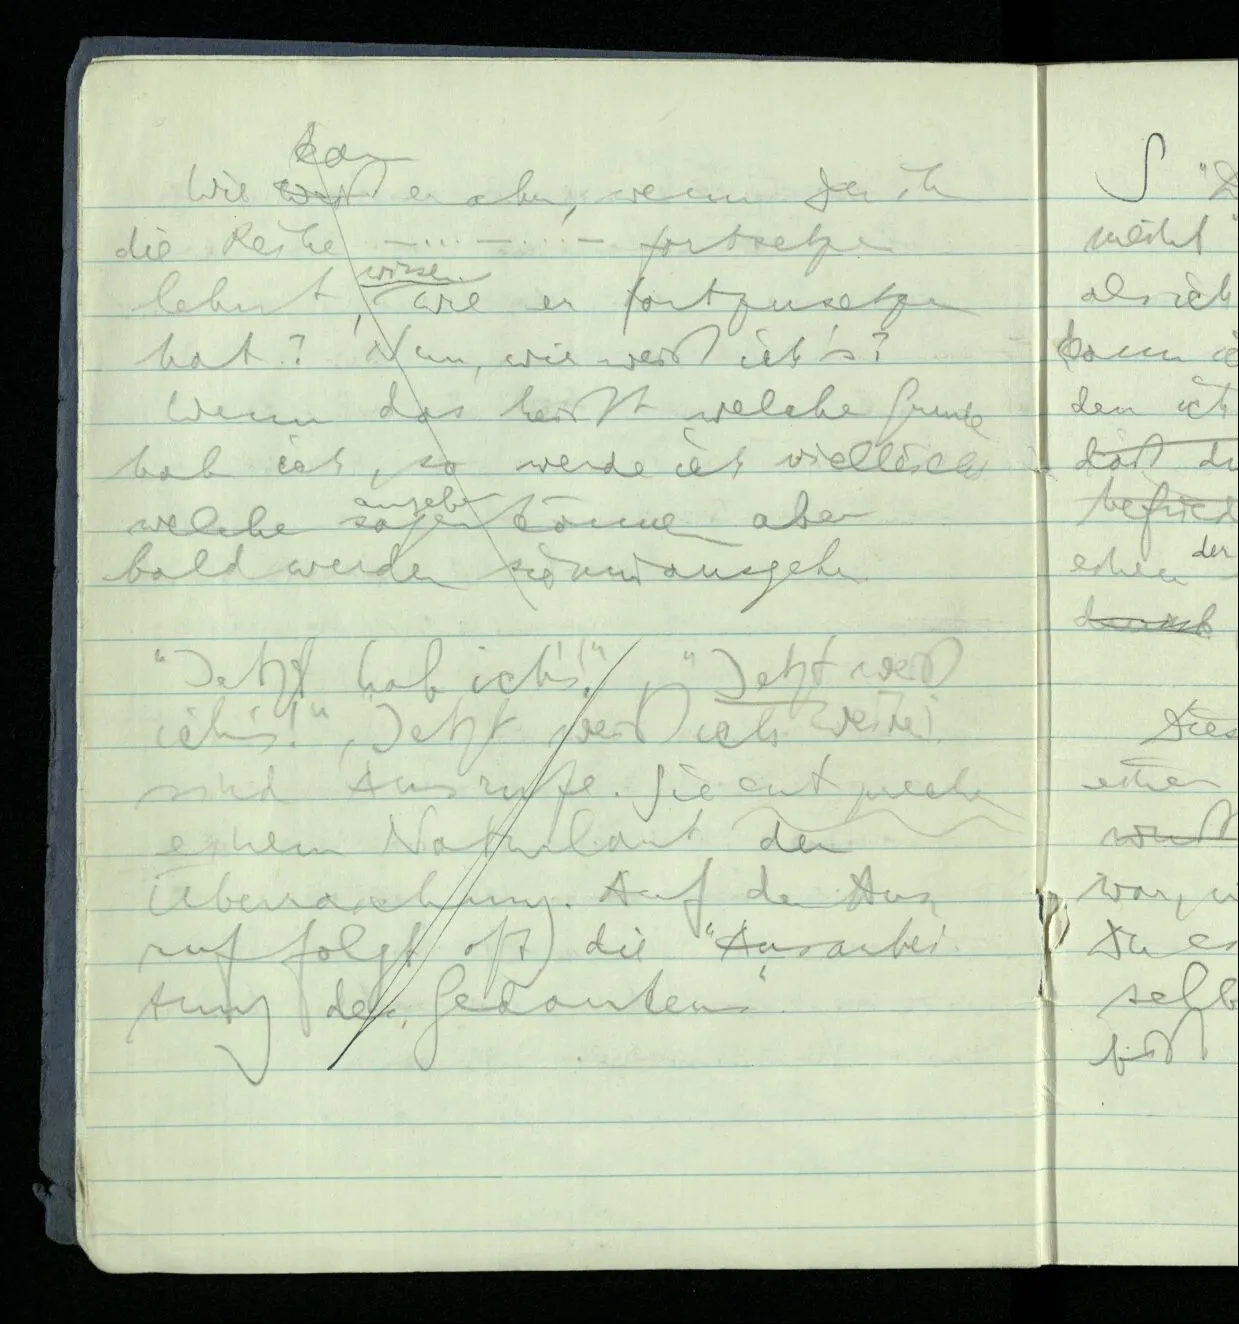 kan
Wie weiß er aber, wenn
die Reihe — ... — ... — fortsetzen
lehrt, wissen wie er fortzusetzen
hat? Nun, wie weiß ich's?
Wenn das heißt welche Gründe
hab ich, so werde ich vielleicht
angeben
welche sagen können aber
bald werden sie mir ausgehen.
"Jetzt hab ich's!", "Jetzt weiß
ich's!", "Jetzt weiß ich weiter"
sind Ausrufe. Sie entsprechen
einem Naturlaut der
Überraschung. Auf den Aus
ruf folgt oft die "Ausarbei
tung des Gedankens"
S "D
meint"
als ich
kann
den ich
hast du
befried
einen der
Dies
einen
war,
Du es
selb
bist